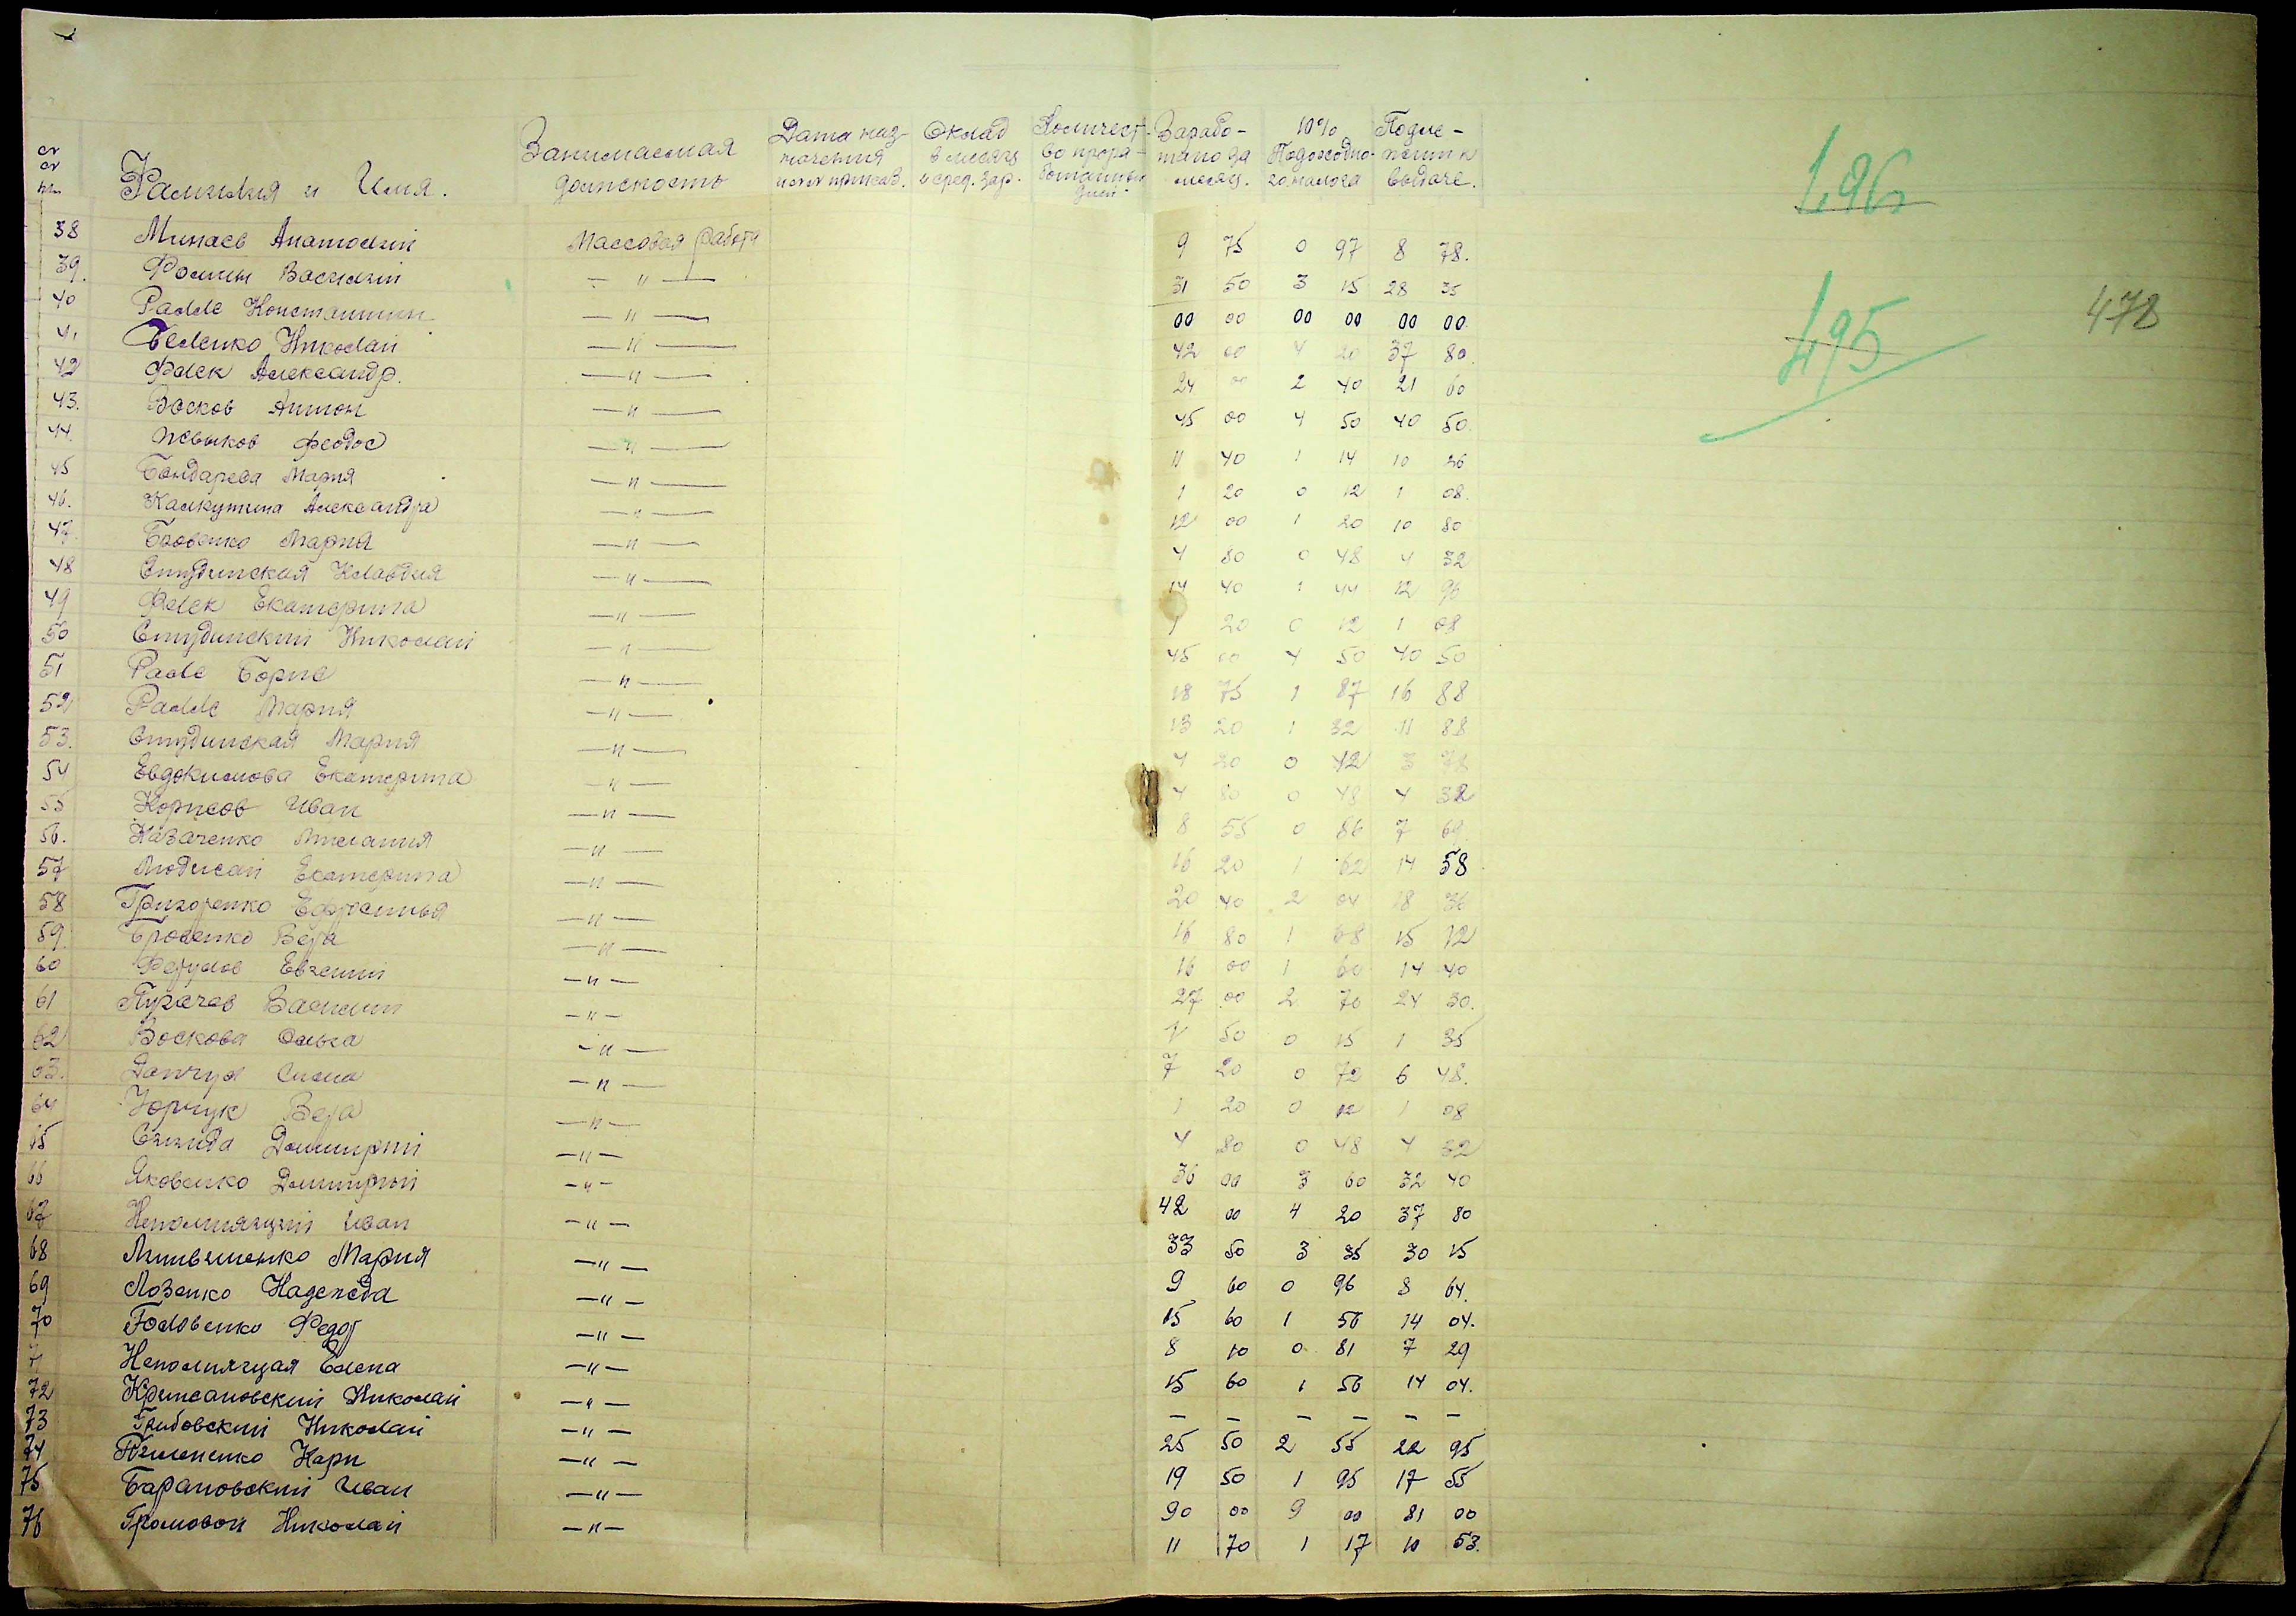 Фамилия и Имя. Занимаемая должность Дата назначения Оклад в месяц и сред. зар. Количество проработанных дней Заработано за месяц. 10% Подоходного налога Подлежит к выдаче.
196
495
478
38 Минаев Анатолий Массовая работа 9 75 0 97 8 78.
39. Фомин Василий — " — 31 50 3 15 28 35
40 Радде Константин — " — 00 00 00 00 00 00
41 Беленко Николай — " — 42 00 4 20 37 80
42 Фельк Александр. — " — 24 00 2 40 21 60
43. Восков Антон — " — 45 00 4 50 40 50
44. Феодос — " — 11 40 1 14 10 26
45 Бондарева Мария — " — 1 20 0 12 1 08
46. Калкутина Александра — " — 12 00 1 20 10 80
47. Мария — " — 4 80 0 48 4 32
48 Студинская Клавдия — " — 14 40 1 44 12 96
49 Фельк Екатерина — " — 1 20 0 12 1 08
50 Студинский Николай — " — 45 00 4 50 40 50
51 Радде Борис — " — 18 75 1 87 16 88
52 Радде Мария — " — 13 20 1 32 11 88
53. Студинская Мария — " — 4 20 0 42 3 78
54 Евдокимова Екатерина — " — 4 80 0 48 4 32
55 Корисов Иван — " — 8 55 0 86 7 69
56. Казаченко — " — 16 20 1 62 14 58
57 Екатерина — " — 20 40 2 04 18 36
58 Григоренко Ефросинья — " — 16 80 1 68 15 12
59 Бровенко Вера — " — 16 00 1 60 14 40
60 Евгений — " — 27 00 2 70 24 30.
61 Пугачев Василий — " — 1 50 0 15 1 35
62 Воскова Ольга — " — 7 20 0 72 6 48.
63. — " — 1 20 0 12 1 08
64 Вера — " — 4 80 0 48 4 32
65 Дмитрий — " — 36 00 3 60 32 40
66 Яковенко Дмитрий — " — 42 00 4 20 37 80
67 Непомнящий Иван — " — 33 50 3 35 30 15
68 Литвиненко Мария — " — 9 60 0 96 8 64.
69 Лозенко Надежда — " — 15 60 1 56 14 04.
70 Головенко Федор — " — 8 10 0 81 7 29
71 Непомнящая Елена — " — 15 60 1 56 14 04.
72 Крижановский Николай — " — — — — — — —
73 Грибовский Николай — " — 25 50 2 55 22 95
74 Карп — " — 19 50 1 95 17 55
75 Барановский Иван — " — 90 00 9 00 81 00
76 Громовой Николай — " — 11 70 1 17 10 53.